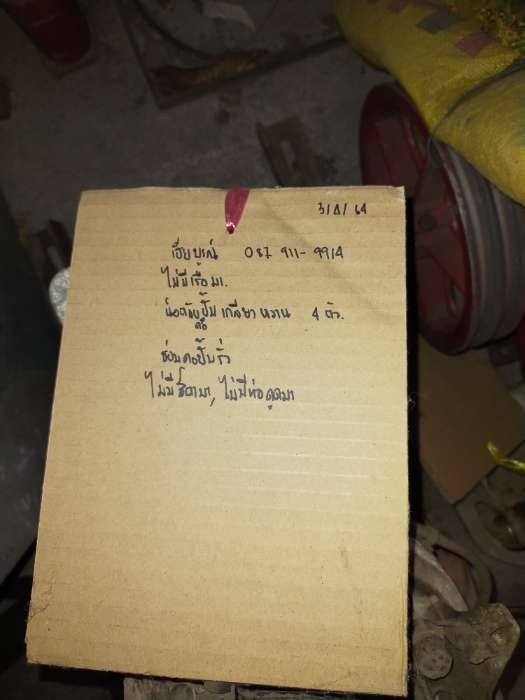 3/8/64
เฮียบูรณ์ 087 911-9914
ไม่มีเรื้อมา.
น็อตจับปั๊ม เกลียว หวาน 4 ตัว.
คือ
ซ่อมคอปั๊มรั่ว
ไม่มีมา, ไม่มีท่อดูดมา